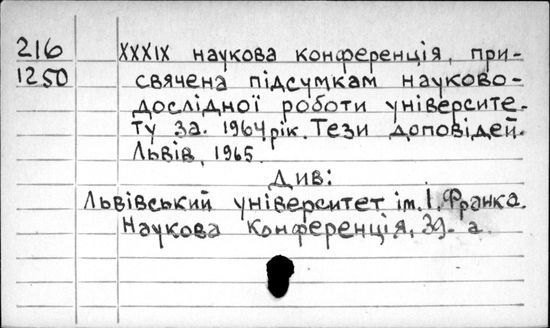 216
1250
XXXIX наукова конференція, при-
свячена підсумкам науково-
дослідної роботи університе-
ту за. 1964рік. Тези доповідей.
Львів, 1965.
Див:
Львівський університет ім. І. Франка.
Наукова Конференція, 39-а.